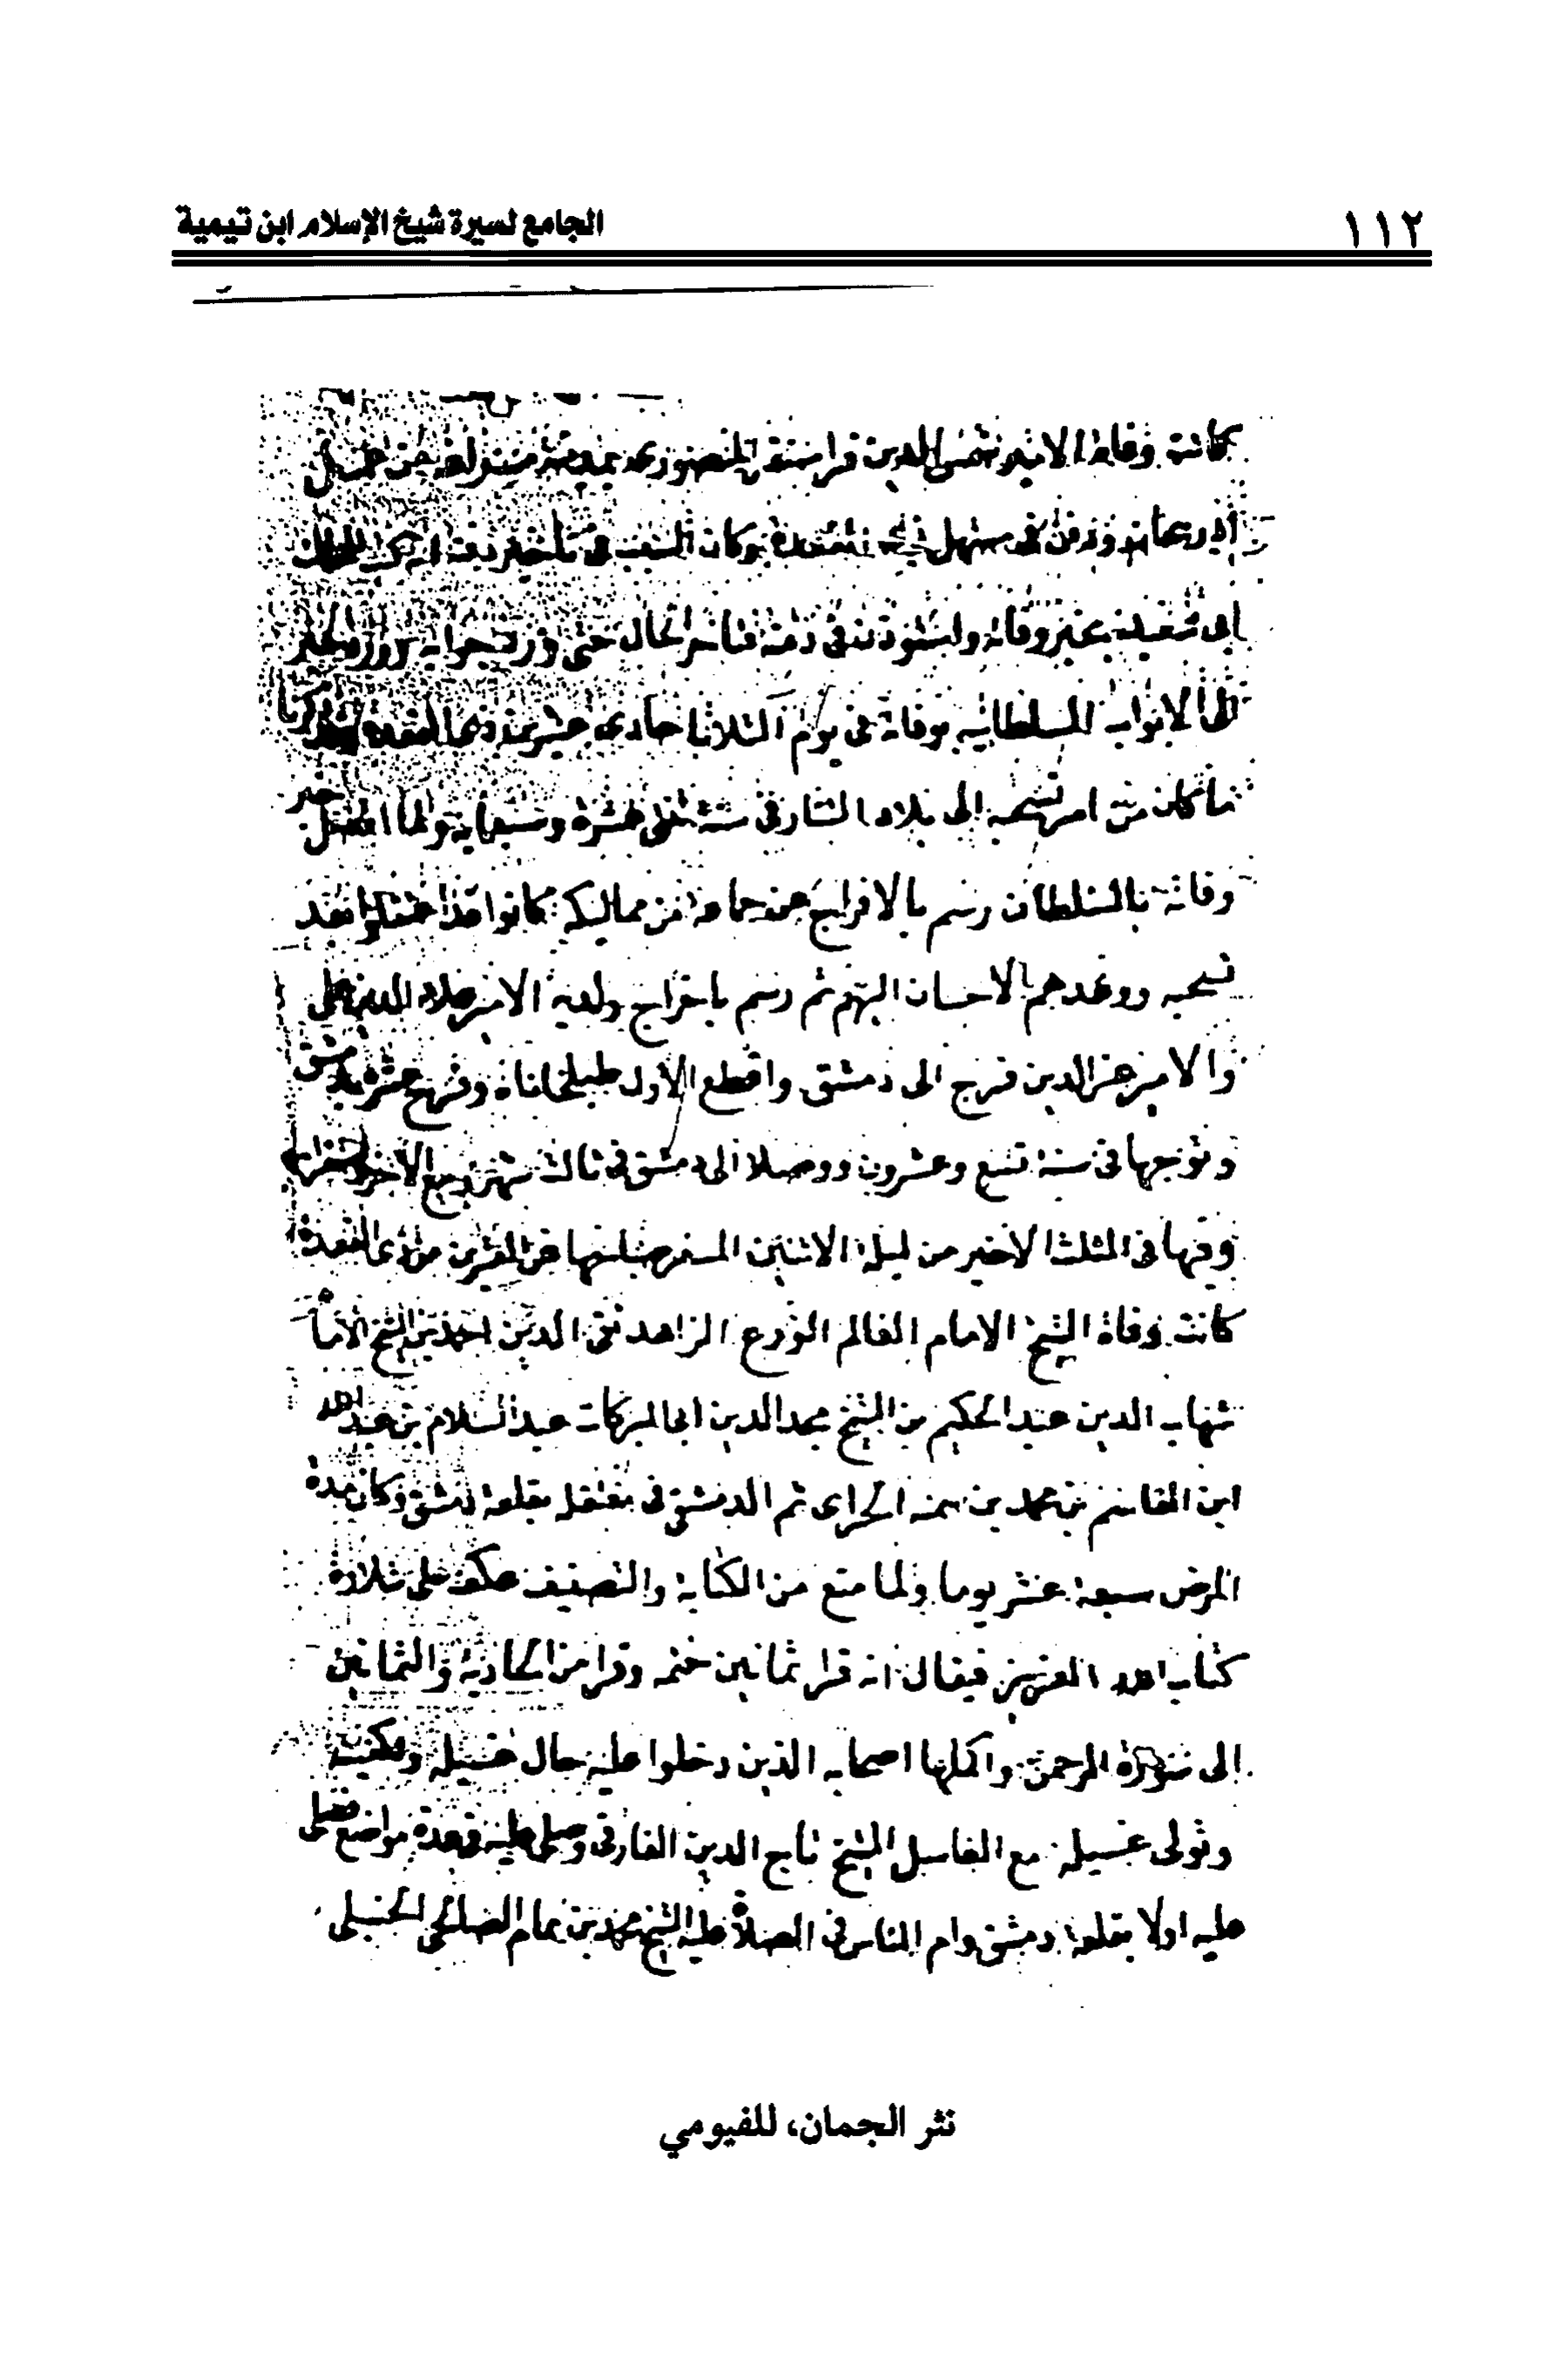 ١١٢
الجامع لسيرة شيخ الإسلام ابن تيمية
كانت وفاة الامير شمس الدين قراسنقر المنصورى بمدينة
ودفن فى مستهل ذى القعدة وكان السبب فى تاخير
ابى سعيد بخبر وفاته ولستوذن فى دفنه فتاخر الحال حتى ورد جوابه وورد الخبر
الى الابواب السلطانيه بوفاته فى يوم الثلاثا حادى عشرين ذى القعدة
ما كان من امر تسحبه الى بلاد التتار فى سنة اثنى عشرة وسبعماية ولما اتصل خبر
وفاته بالسلطان رسم بالافراج عن جماعة من مماليكه كانوا قد اعتقلوا بعد
تسحبه ووعدهم بالاحسان اليهم ثم رسم باخراج ولديه الامير علاء الدين على
والامير عز الدين فرج الى دمشق واقطع الاول طبلخاناة وفرج عشرة بدمشق
وتوجها فى سنة تسع وعشرين ووصلا الى دمشق فى ثالث شهر ربيع الآخر
وفيها فى الثلث الاخير من ليلة الاثنين المسفر صباحها عن العشرين من ذى القعدة
كانت وفاة الشيخ الامام العالم الورع الزاهد تقى الدين احمد بن الشيخ الامام
شهاب الدين عبد الحكيم بن الشيخ مجد الدين ابى البركات عبد السلام بن عبد الله
ابن القاسم بن محمد بن تيميه الحرانى ثم الدمشقى فى معتقله بقلعة دمشق وكان مدة
المرض سبعة عشر يوما ولما منع من الكتابة والتصنيف عكف على تلاوة
كتاب الله العزيز فيقال انه قرا ثمانين ختمه وقرا من الحادية والثمانين
الى سورة الرحمن واكملها اصحابه الذين دخلوا عليه حال غسله وتكفينه
وتولى غسله مع الغاسل الشيخ تاج الدين الفارقى وصلى عليه فى عدة مواضع فصلى
عليه اولا بقلعة دمشق وام الناس فى الصلاة عليه الشيخ محمد بن تمام الصالحى الحنبلى
نثر الجمان، للفيومي